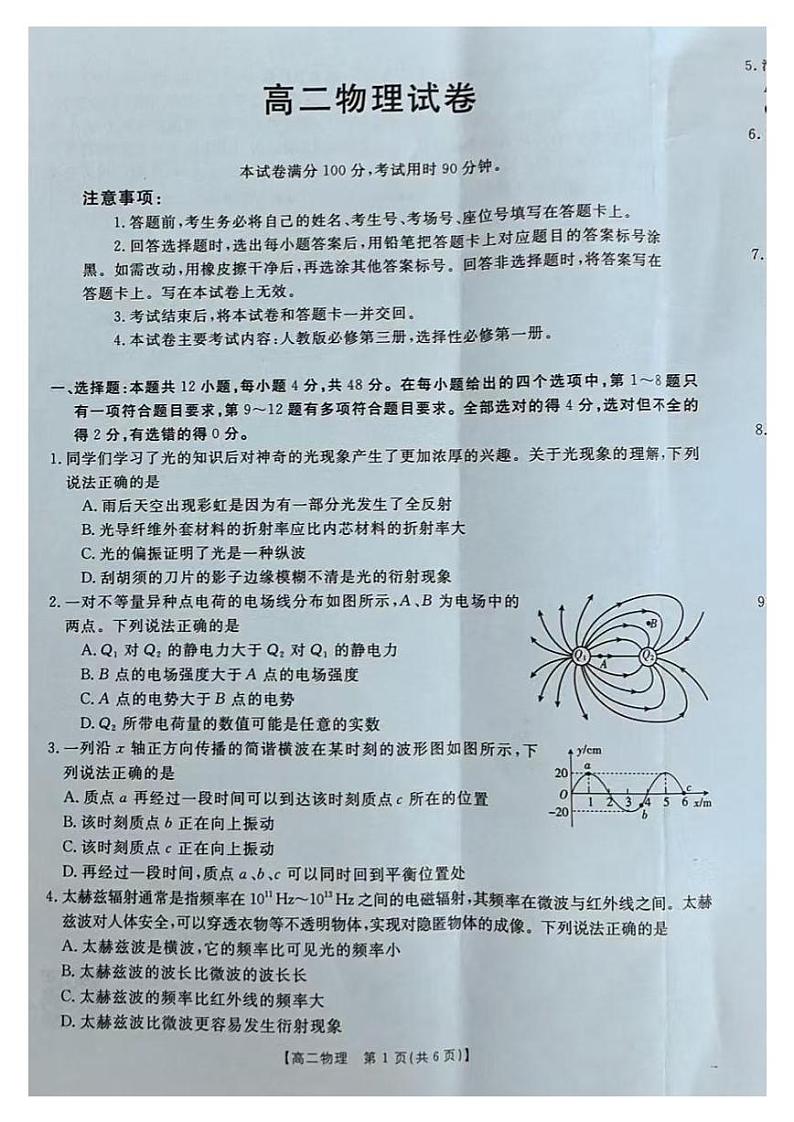 高二物理试卷
本试卷满分100分,考试用时90分钟。
注意事项:
1.答题前,考生务必将自己的姓名、考生号、考场号、座位号填写在答题卡上。
2.回答选择题时,选出每小题答案后,用铅笔把答题卡上对应题目的答案标号涂
黑。如需改动,用橡皮擦干净后,再选涂其他答案标号。回答非选择题时,将答案写在
答题卡上。写在本试卷上无效。
3.考试结束后,将本试卷和答题卡一并交回。
4.本试卷主要考试内容:人教版必修第三册,选择性必修第一册。
一、选择题:本题共12小题,每小题4分,共48分。在每小题给出的四个选项中,第1~8题只
有一项符合题目要求,第9~12题有多项符合题目要求。全部选对的得4分,选对但不全的
得2分,有选错的得0分。
1.同学们学习了光的知识后对神奇的光现象产生了更加浓厚的兴趣。关于光现象的理解,下列
说法正确的是
A.雨后天空出现彩虹是因为有一部分光发生了全反射
B.光导纤维外套材料的折射率应比内芯材料的折射率大
C.光的偏振证明了光是一种纵波
D.刮胡须的刀片的影子边缘模糊不清是光的衍射现象
2.一对不等量异种点电荷的电场线分布如图所示,A、B为电场中的
两点。下列说法正确的是
A.Q₁对Q₂的静电力大于Q₂对Q₁的静电力
B.B点的电场强度大于A点的电场强度
C.A点的电势大于B点的电势
D.Q₂所带电荷量的数值可能是任意的实数
Q₁ A B Q₂
3.一列沿x轴正方向传播的简谐横波在某时刻的波形图如图所示,下
列说法正确的是
A.质点a再经过一段时间可以到达该时刻质点c所在的位置
B.该时刻质点b正在向上振动
C.该时刻质点c正在向上振动
D.再经过一段时间,质点a、b、c可以同时回到平衡位置处
y/cm
20 a
O 1 2 3 4 5 6 x/m c
-20 b
4.太赫兹辐射通常是指频率在10¹¹Hz~10¹³Hz之间的电磁辐射,其频率在微波与红外线之间。太赫
兹波对人体安全,可以穿透衣物等不透明物体,实现对隐匿物体的成像。下列说法正确的是
A.太赫兹波是横波,它的频率比可见光的频率小
B.太赫兹波的波长比微波的波长长
C.太赫兹波的频率比红外线的频率大
D.太赫兹波比微波更容易发生衍射现象
【高二物理 第1页(共6页)】
5.
6.
7.
8.
9